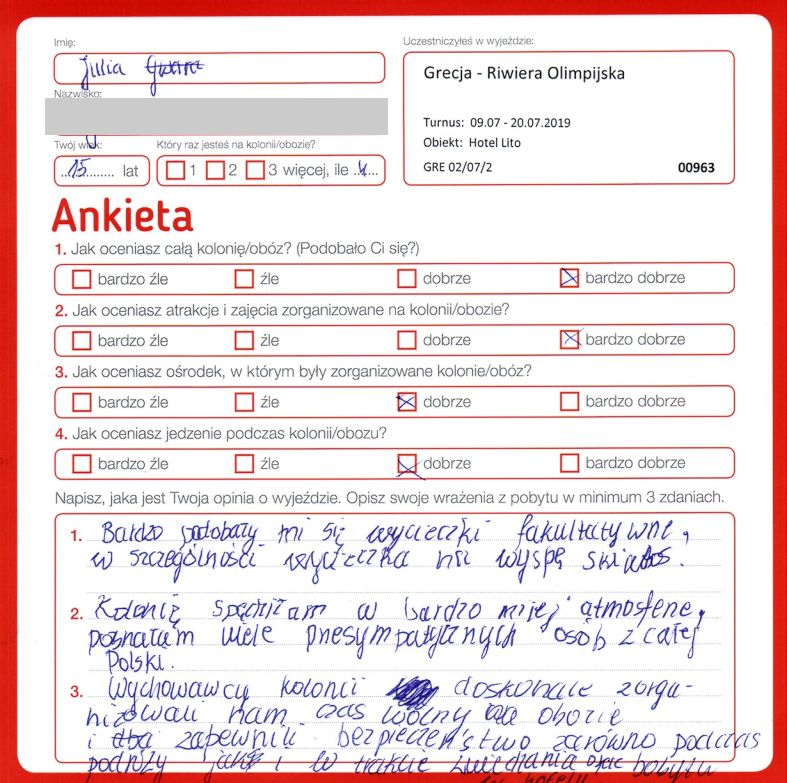 Imię:
Julia
Uczestniczyłeś w wyjeździe:
Grecja - Riwiera Olimpijska
Turnus: 09.07 - 20.07.2019
Obiekt: Hotel Lito
GRE 02/07/2
00963
Nazwisko:
Twój wiek:
15 lat
Który raz jesteś na kolonii/obozie?
1 2 3 więcej, ile 4
Ankieta
1. Jak oceniasz całą kolonię/obóz? (Podobało Ci się?)
bardzo źle źle dobrze bardzo dobrze
2. Jak oceniasz atrakcje i zajęcia zorganizowane na kolonii/obozie?
bardzo źle źle dobrze bardzo dobrze
3. Jak oceniasz ośrodek, w którym były zorganizowane kolonie/obóz?
bardzo źle źle dobrze bardzo dobrze
4. Jak oceniasz jedzenie podczas kolonii/obozu?
bardzo źle źle dobrze bardzo dobrze
Napisz, jaka jest Twoja opinia o wyjeździe. Opisz swoje wrażenia z pobytu w minimum 3 zdaniach.
1. Bardzo podobały mi się wycieczki fakultatywne,
w szczególności wycieczka na wyspę skiatos.
2. Kolonię spędziłam w bardzo miłej atmosferze,
poznałam wiele przesympatycznych osób z całej
Polski.
3. Wychowawcy kolonii doskonale zorga-
nizowali nam czas wolny na obozie
i zapewnili bezpieczeństwo zarówno podczas
podróży jak i w trakcie zwiedzania oraz pobytu
w hotelu